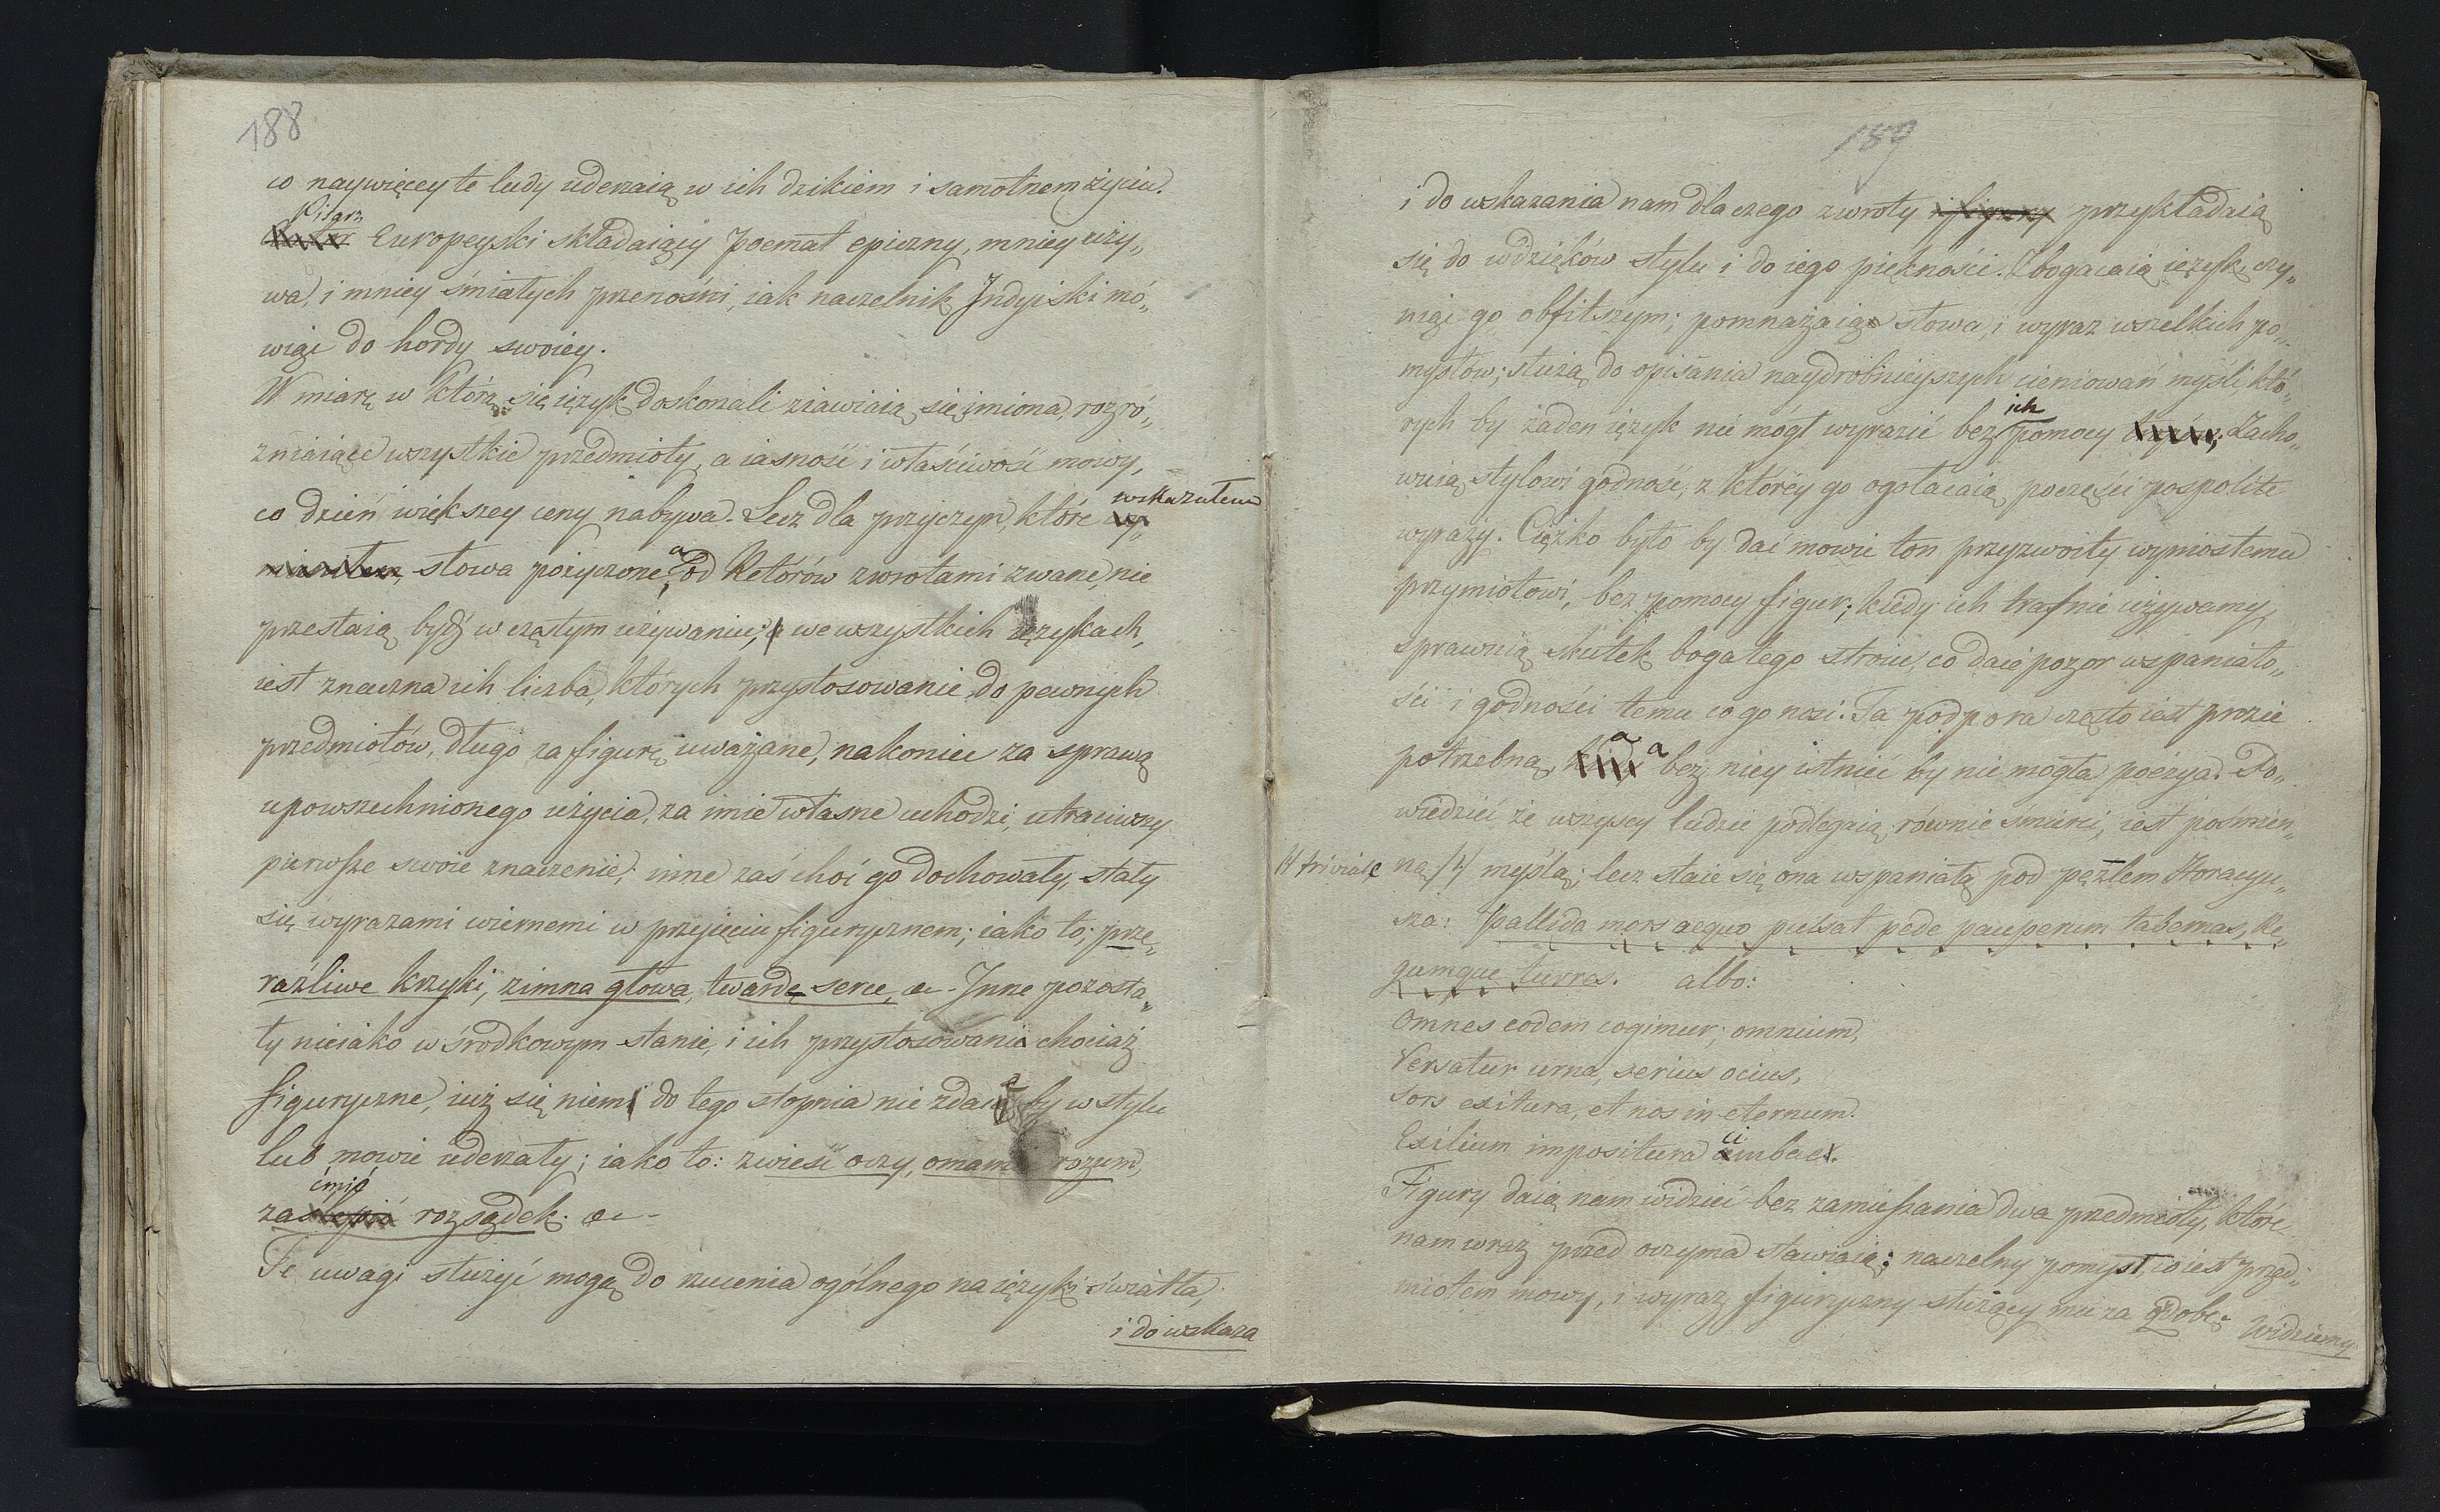 188
co naywięcey te ludy uderzaią w ich dzikiem i samotnem życiu.
Pisarz
Europeyski składaiący poemat epiczny, mniey uży„
wa, i mniey śmiałych przenośni, iak naczelnik Indyiski mó„
wiąc do hordy swoiey.
W miarę w którą się ięzyk doskonali ziawiaią się imiona, rozró„
żniaiące wszystkie przedmioty, a iasność i właściwość mowy,
co dzień większey ceny nabywa. Lecz dla przyczyn, które wskazałem
słowa pożyczone, a od Retórów zwrotami zwane, nie
przestaią bydź w częstym używaniu; we wszystkich ięzykach,
iest znaczna ich liczba, których przystosowanie do pewnych
przedmiotów, długo za figurę uważane, nakoniec za sprawą
upowszechnionego użycia, za imie własne uchodzi, utraciwszy
pierwsze swoie znaczenie; inne zaś choć go dochowały, stały
się wyrazami wiernemi w przyięciu figurycznem; iako to; prze„
raźliwe krzyki, zimna głowa, twarde serce, &c. Inne pozosta„
ły nieiako w środkowym stanie, i ich przystosowanie chociaż
figuryczne, iuż się niem do tego stopnia nie zdaie by w stylu
lub mowie uderzały; iako to: zwieść oczy, omamić rozum,
zaćmić rozsądek. &c.
Te uwagi służyć mogą do rzucenia ogólnego na ięzyki światła,
i do wskaza
189
i do wskazania nam dla czego zwroty i figury przykładaią
się do wdzięków stylu i do iego piękności. Zbogacaią ięzyk, czy„
niąc go obfitszym; pomnażaią słowa, i wyraz wszelkich po„
mysłów; służą do opisania naydrobnieyszych cieniowań myśli, któ„
rych by żaden ięzyk nie mógł wyrazić bez ich pomocy. Zacho„
wuią stylowi godność, z którey go ogołacaią, poczęści pospolite
wyrazy. Ciężko było by dać mowie ton przyzwoity wyniosłemu
przymiotowi, bez pomocy figur; kiedy ich trafnie używamy,
sprawuią skutek bogatego stroiu, co daie pozor wspaniało„
ści i godności temu co go nosi. Ta podpora często iest prozie
potrzebną, a bez niey istnieć by nie mogła poezya. Po„
wiedzieć że wszyscy ludzie podlegaią równie śmierci, iest pośmien„
// triviale ną // myślą; lecz staie się ona wspaniałą pod pęzlem Horacyu„
sza: Pallida mors aequo pulsat pede pauperum tabernas, Re„
gumque turres. albo:
Omnes eodem cogimur; omnium,
Versatur urna, serius ocius,
Sors exitura, et nos in eternum.
Exilium impositura cimbae.
Figury daią nam widzieć bez zamieszania dwa przedmioty, które
nam wraz przed oczyma stawiaią; naczelny pomysł, co iest przed„
miotem mowy, i wyraz figuryczny służący mu za ozdobę. Widziemy